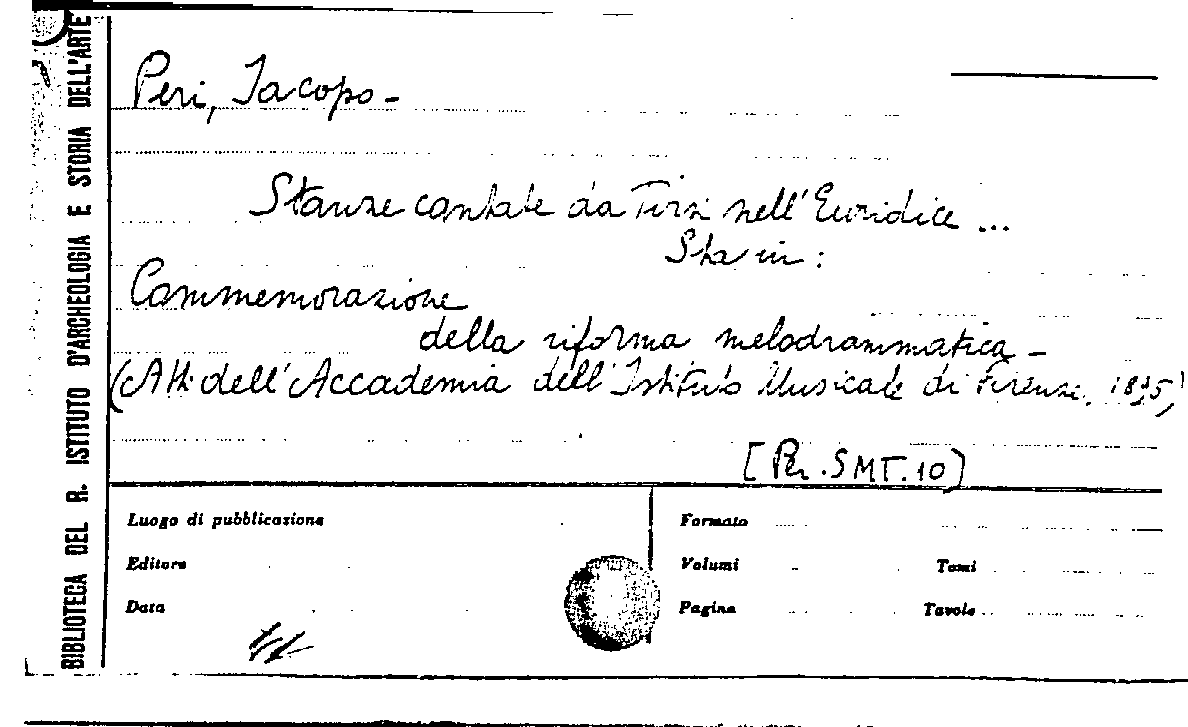 BIBLIOTECA DEL R. ISTITUTO D'ARCHEOLOGIA E STORIA DELL'ARTE
Peri, Jacopo -
Stanze cantate da Tirsi nell'Euridice ...
Sta in:
Commemorazione
della riforma melodrammatica -
(Atti dell'Accademia dell'Istituto Musicale di Firenze,
[Per. SMT. 10)
Luogo di pubblicazione
Formato
Editore
Volumi
Tomi
Data
Pagine
Tavole